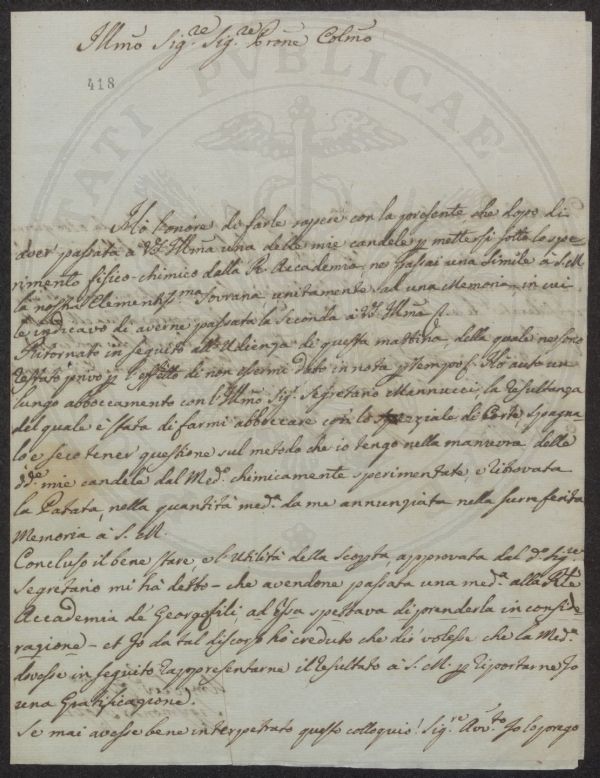 Illmo Sig.re Sig.re Prone Colmo
418
Hò l'onore di farle sapere con la presente che dopo di
aver passata à VS. Illma una delle mie candele p mettersi sotto lo spe-
rimento fisico-chimico dalla R. Accademia, ne passai una simile à S. M
la nostra Clementiss.ma Sovrana unitamente ad una Memoria, in cui
le indicavo di averne passata la seconda à VS. Illma
Ritornato in seguito all'Udienza di questa mattina, della quale ne sono
restato privo p l'effetto di non essermi dato in nota p tempo Hò auto un
lungo abboccamento con l'Illmo Sig. Segretario Mannucci, la resultanza
del quale è stata di farmi abboccare con lo speziale di Corte, Spagna-
lo e seco tener questione sul metodo che io tengo nella manuvra delle
dde mie candele dal Med.o chimicamente sperimentate, e ritrovata
la Patata, nella quantità med.a da me annunziata nella surriferita
Memoria à S. M.
Concluso il bene stare, e l'Utilità della Scopta, approvata dal d.o Sig.re
Segretario mi hà detto - che avendone passata una med.a alla Rle
Accademia de' Georgofili, ad Essa spettava di prenderla in conside
razione - et Io da tal discorso hò creduto che dir volesse che la Med.a
dovesse in seguito rappresentarne il resultato à S. M. p riportarne Io
una Gratificazione.
Se mai avesse bene interpetrato questo colloquio! Sig.re Avv.to Io lo prego